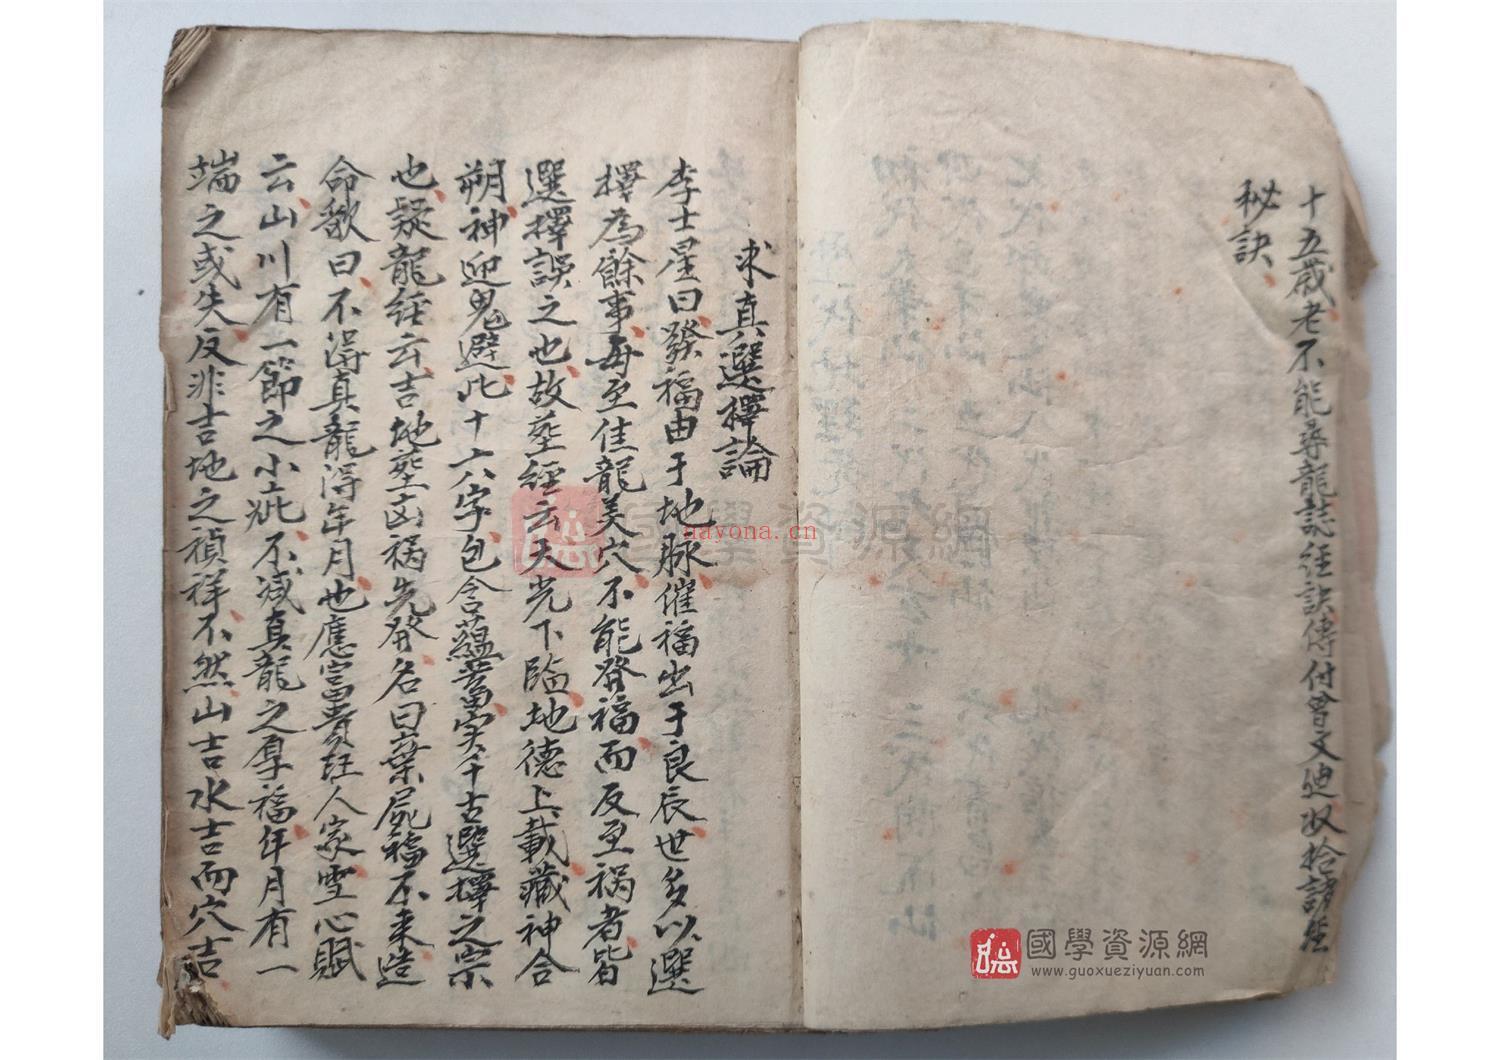 十五歲老不能尋龍誌經訣傳付曾文迪收拾諸經
秘訣
求真選擇論
李士星曰發福由于地脉催福出于良辰世多以選
擇為餘事每至佳龍美穴不能發福而反至禍者皆
選擇誤之也故塟經云天光下臨地德上載藏神合
朔神迎鬼避此十六字包含蘊蓄实千古選擇之宗
也疑龍經云吉地塟凶禍先發名曰棄屍福不来造
命歌曰不得真龍得年月也應富貴旺人家雪心賦
云山川有一節之小疵不減真龍之厚福年月有一
端之或失反非吉地之禎祥不然山吉水吉而穴吉
國學資源網
nayona.cn
國學資源網
www.guoxueziyuan.com